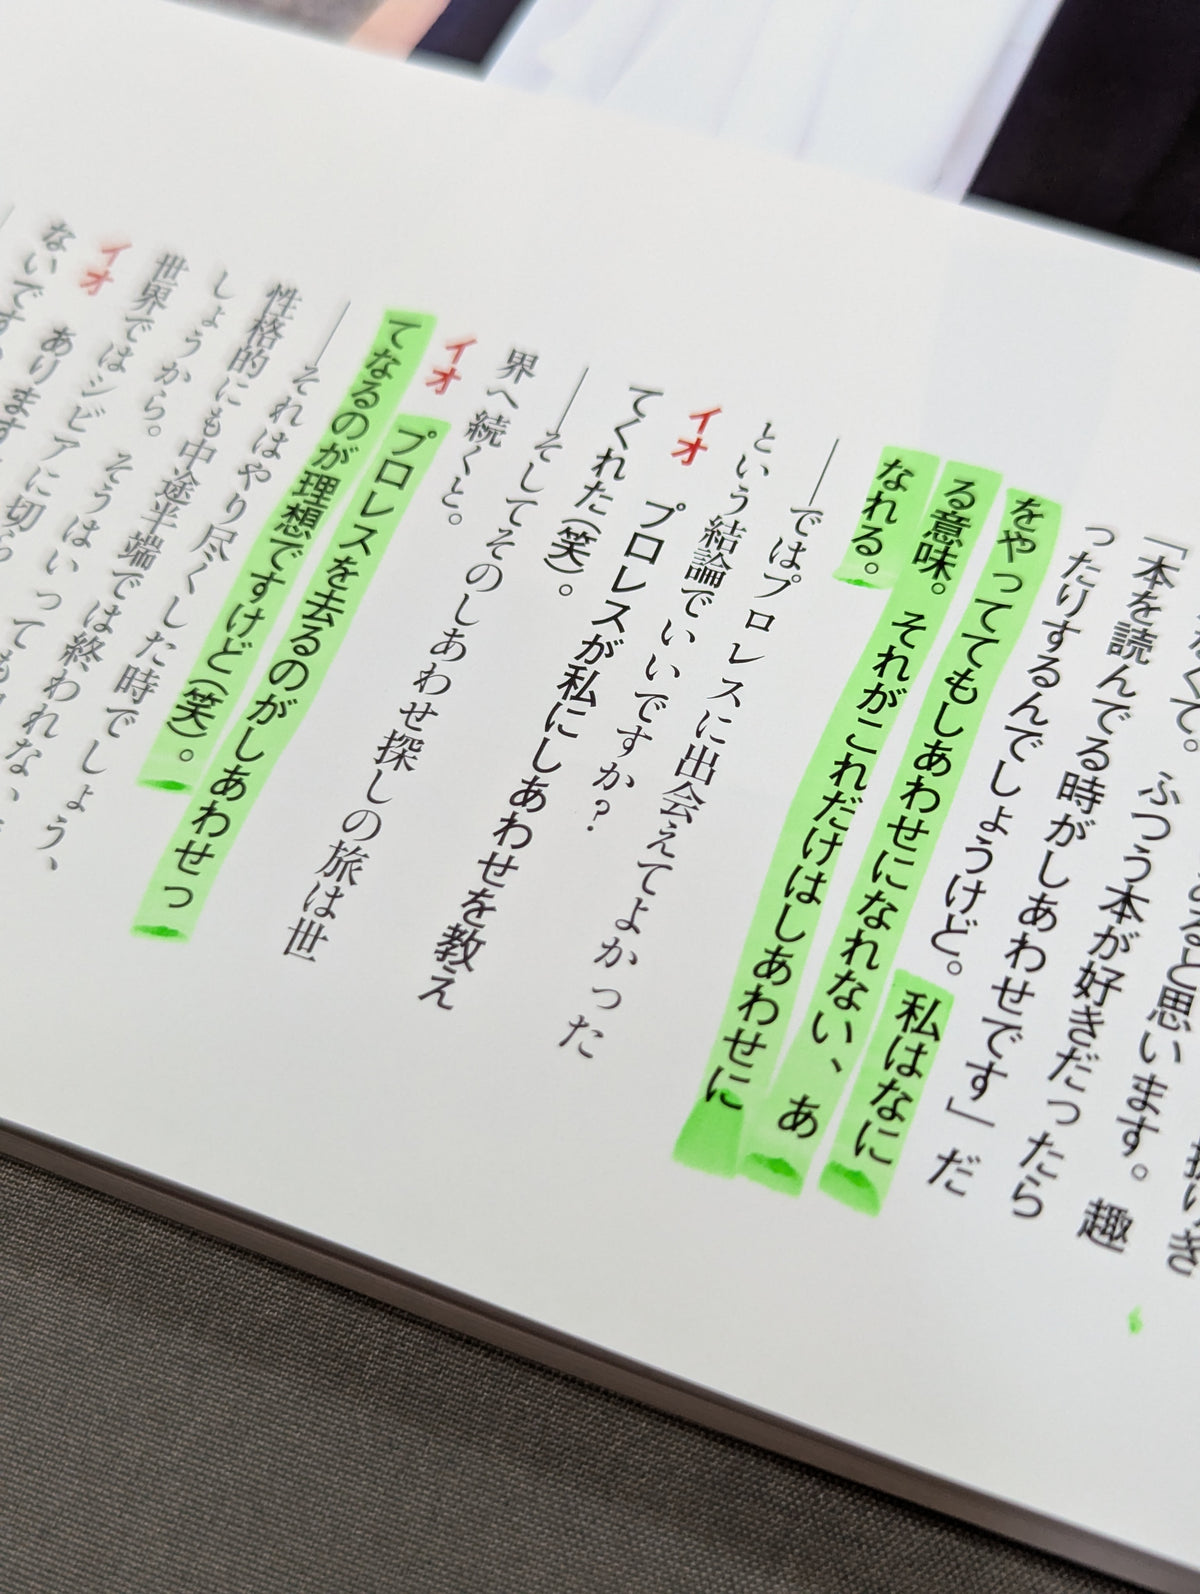 あると思います。趣
なくて。ふつう本が好きだったら
「本を読んでる時がしあわせです」だ
ったりするんでしょうけど。私はなに
をやっててもしあわせになれない、あ
る意味。それがこれだけはしあわせに
なれる。
――ではプロレスに出会えてよかった
という結論でいいですか？
イオ　プロレスが私にしあわせを教え
てくれた(笑)。
――そしてそのしあわせ探しの旅は世
界へ続くと。
イオ　プロレスを去るのがしあわせっ
てなるのが理想ですけど(笑)。
――それはやり尽くした時でしょう、
性格的にも中途半端では終われない
しょうから。そうはいっても
世界ではシビアに切ら
イオ　あります
ないです